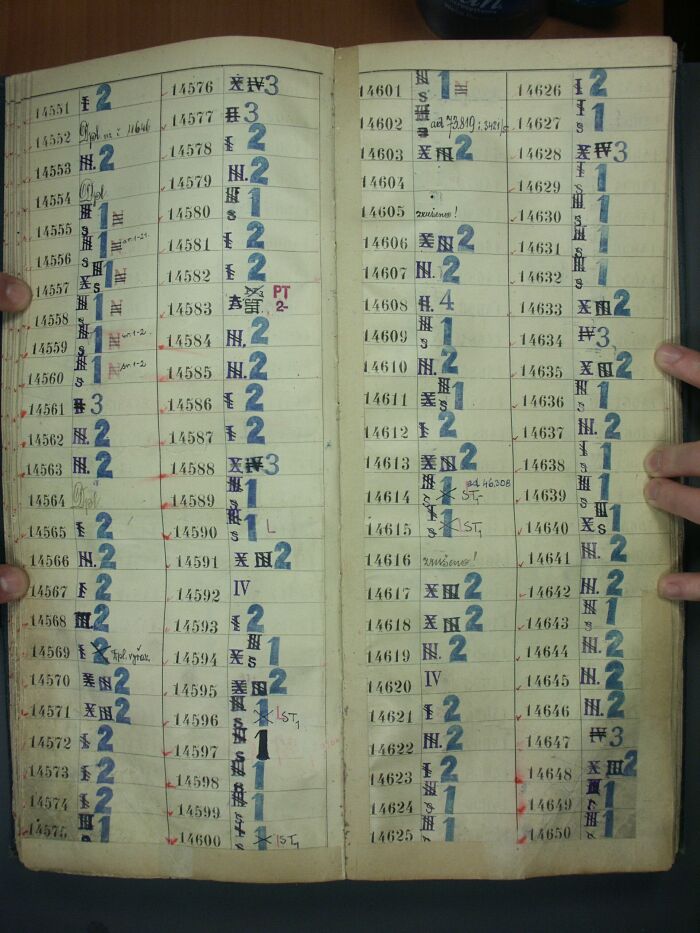 14551 I 2
14552 Dpl. m č 11646
14553 III. 2
14554 Dpl
14555 III s 1 IV
14556 III s 1 IV sv. 1-21.
14557 X III s 1 IV
14558 III s 1 IV
14559 III s 1 IV sv. 1-2.
14560 III s 1 IV sv. 1-2
14561 II 3
14562 III. 2
14563 III. 2
14564 Dpl
14565 I 2
14566 III. 2
14567 I 2
14568 III. 2
14569 I 2 Dpl. vyřaz.
14570 X III 2
14571 X III 2
14572 I 2
14573 I 2
14574 I 2
14575 III s 1
14576 X IV 3
14577 II 3
14578 I 2
14579 III. 2
14580 III s 1
14581 I 2
14582 I 2
14583 A PT 2-
14584 III. 2
14585 III. 2
14586 I 2
14587 I 2
14588 X IV 3
14589 III s 1
14590 III s 1 L
14591 X III 2
14592 IV
14593 I 2
14594 X III s 1
14595 X III 2
14596 III s 1 LST1
14597 III s 1
14598 III s 1
14599 III s 1
14600 I s 1 ST1
14601 III s 1 IV
14602 III s ad 73.819 i 3421/
14603 X III 2
14604
14605 zrušeno!
14606 X III 2
14607 III. 2
14608 II. 4
14609 III s 1
14610 III. 2
14611 X III s 1
14612 I 2
14613 X III 2
14614 III s 1 ad 46.308 ST-
14615 I s 1 ST1
14616 zrušeno!
14617 X III 2
14618 X III 2
14619 III. 2
14620 IV
14621 I 2
14622 III. 2
14623 I 2
14624 III s 1
14625 III s 1
14626 I 2
14627 I s 1
14628 X IV 3
14629 I s 1
14630 III s 1
14631 III s 1
14632 III s 1
14633 X III 2
14634 IV 3
14635 X III 2
14636 III s 1
14637 III. 2
14638 I s 1
14639 III s 1
14640 X III s 1
14641 III. 2
14642 III. 2
14643 III s 1
14644 III. 2
14645 III. 2
14646 III. 2
14647 IV 3
14648 X III 2
14649 1
14650 III 1